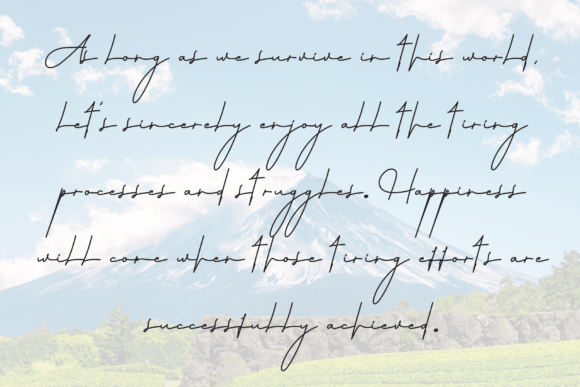 As long as we survive in this world,
let's sincerely enjoy all the tiring
processes and struggles. Happiness
will come when those tiring efforts are
successfully achieved.